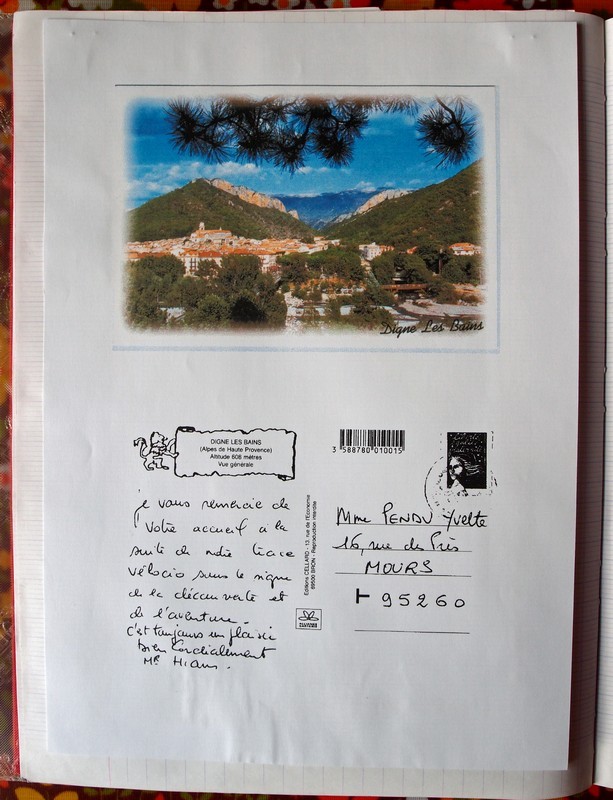 Digne Les Bains
DIGNE LES BAINS
(Alpes de Haute Provence)
Altitude 608 mètres
Vue générale
3 588780 010015
je vous remercie de
votre accueil a la
suite de notre trace
vélocio sous le signe
de la découverte et
de l'aventure.
C'est toujours un plaisir
bien Cordialement
Mr
Editions CELLARD - 13, rue de l'Economie
69500 BRON - Reproduction interdite
Mme PENDU Yvette
16, rue des Près
MOURS
95260